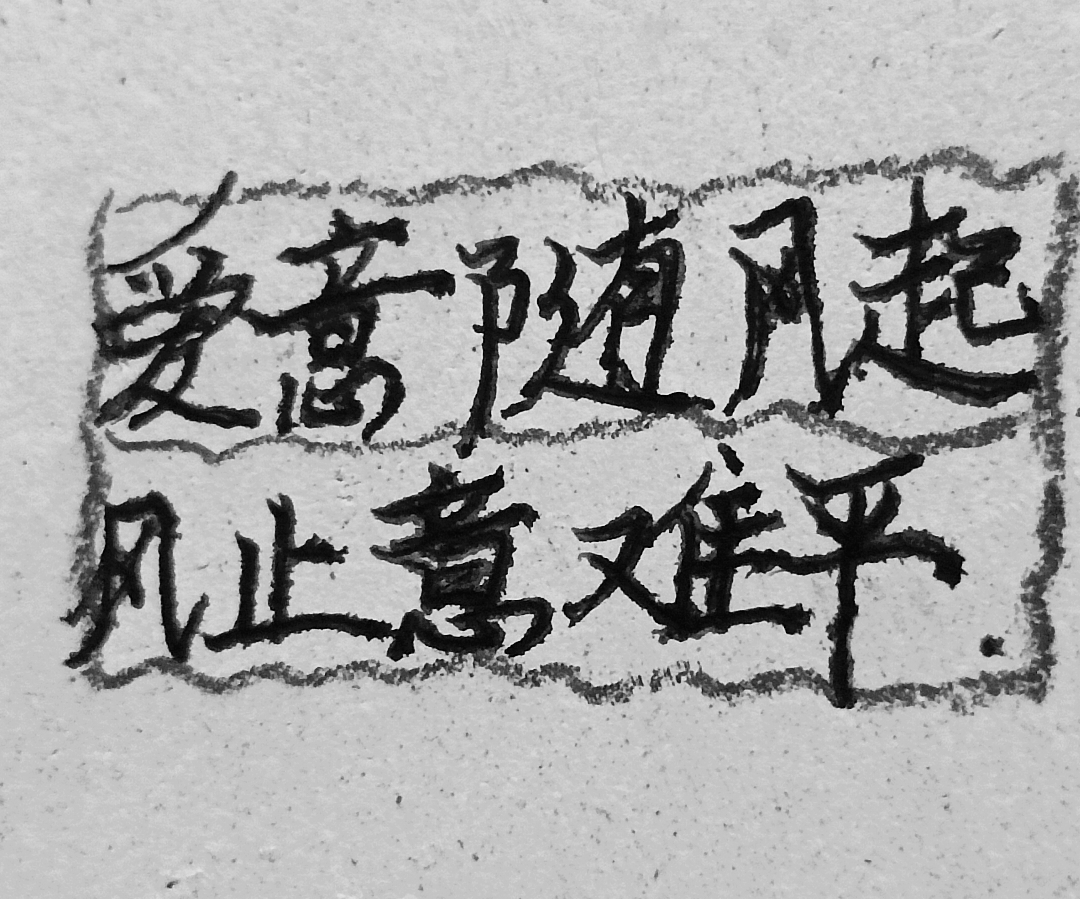 爱意随风起
风止意难平.